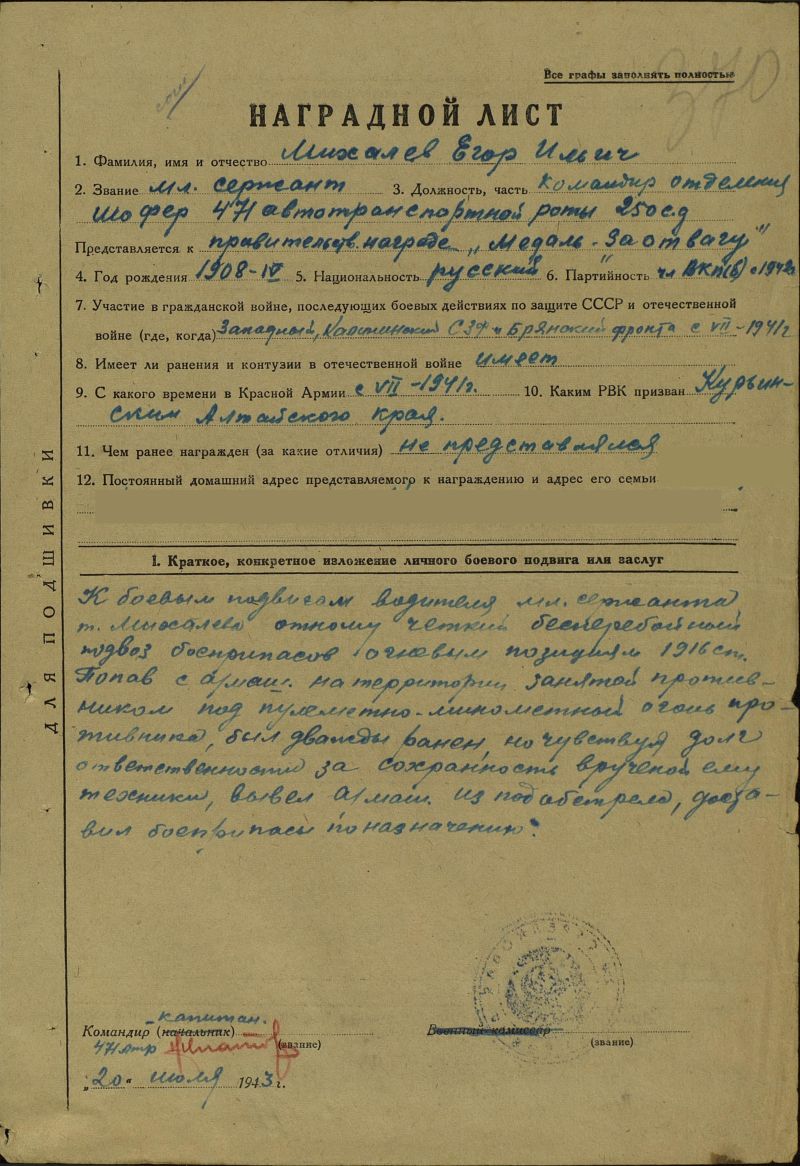 Все графы заполнять полностью
370
НАГРАДНОЙ ЛИСТ
1. Фамилия, имя и отчество Михалев Егор Ильич
2. Звание мл. сержант 3. Должность, часть командир отделения
шофер 471 автотранспортной роты 250 с.д
Представляется к правительств. награде „Медаль - За отвагу"
4. Год рождения 1908-IV 5. Национальность русский 6. Партийность чл ВКП(б) с 1942г
7. Участие в гражданской войне, последующих боевых действиях по защите СССР и отечественной
войне (где, когда) Западный, Калининский СЗФ и Брянский фронта с VII-1941г
8. Имеет ли ранения и контузии в отечественной войне имеет
9. С какого времени в Красной Армии с VII-1941г. 10. Каким РВК призван Курьин-
ским Алтайского края.
11. Чем ранее награжден (за какие отличия) не представлялся
12. Постоянный домашний адрес представляемого к награждению и адрес его семьи
ДЛЯ ПОДШИВКИ
1. Краткое, конкретное изложение личного боевого подвига или заслуг
К боевым подвигам водителя мл. сержанта
т. Михалева отношу четкий бесперебойный
подвоз боеприпасов огневым позициям 1916 сп.
Попав с а/маш. на территории занятой против-
ником под пулеметно-минометный огонь про-
тивника, был дважды ранен, но чувствуя долг
ответственности за сохранность врученой ему
техники, вывел а/маш. из под абстрела, доста-
вил боеприпасы по назначению.
капитан.
Командир (начальник)
471 атр
(звание)
Военный комиссар
(звание)
„20" июля 1943г.